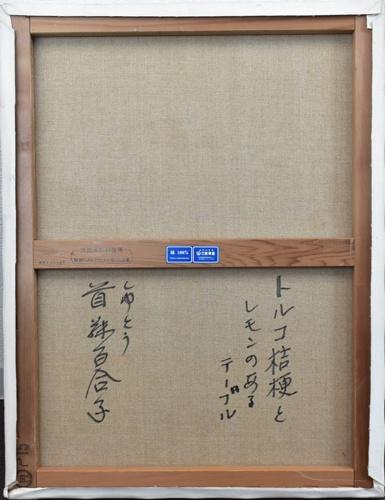 麻 100%
トルコ桔梗と
レモンのある
テーブル
しゅとう
首藤百合子
P15